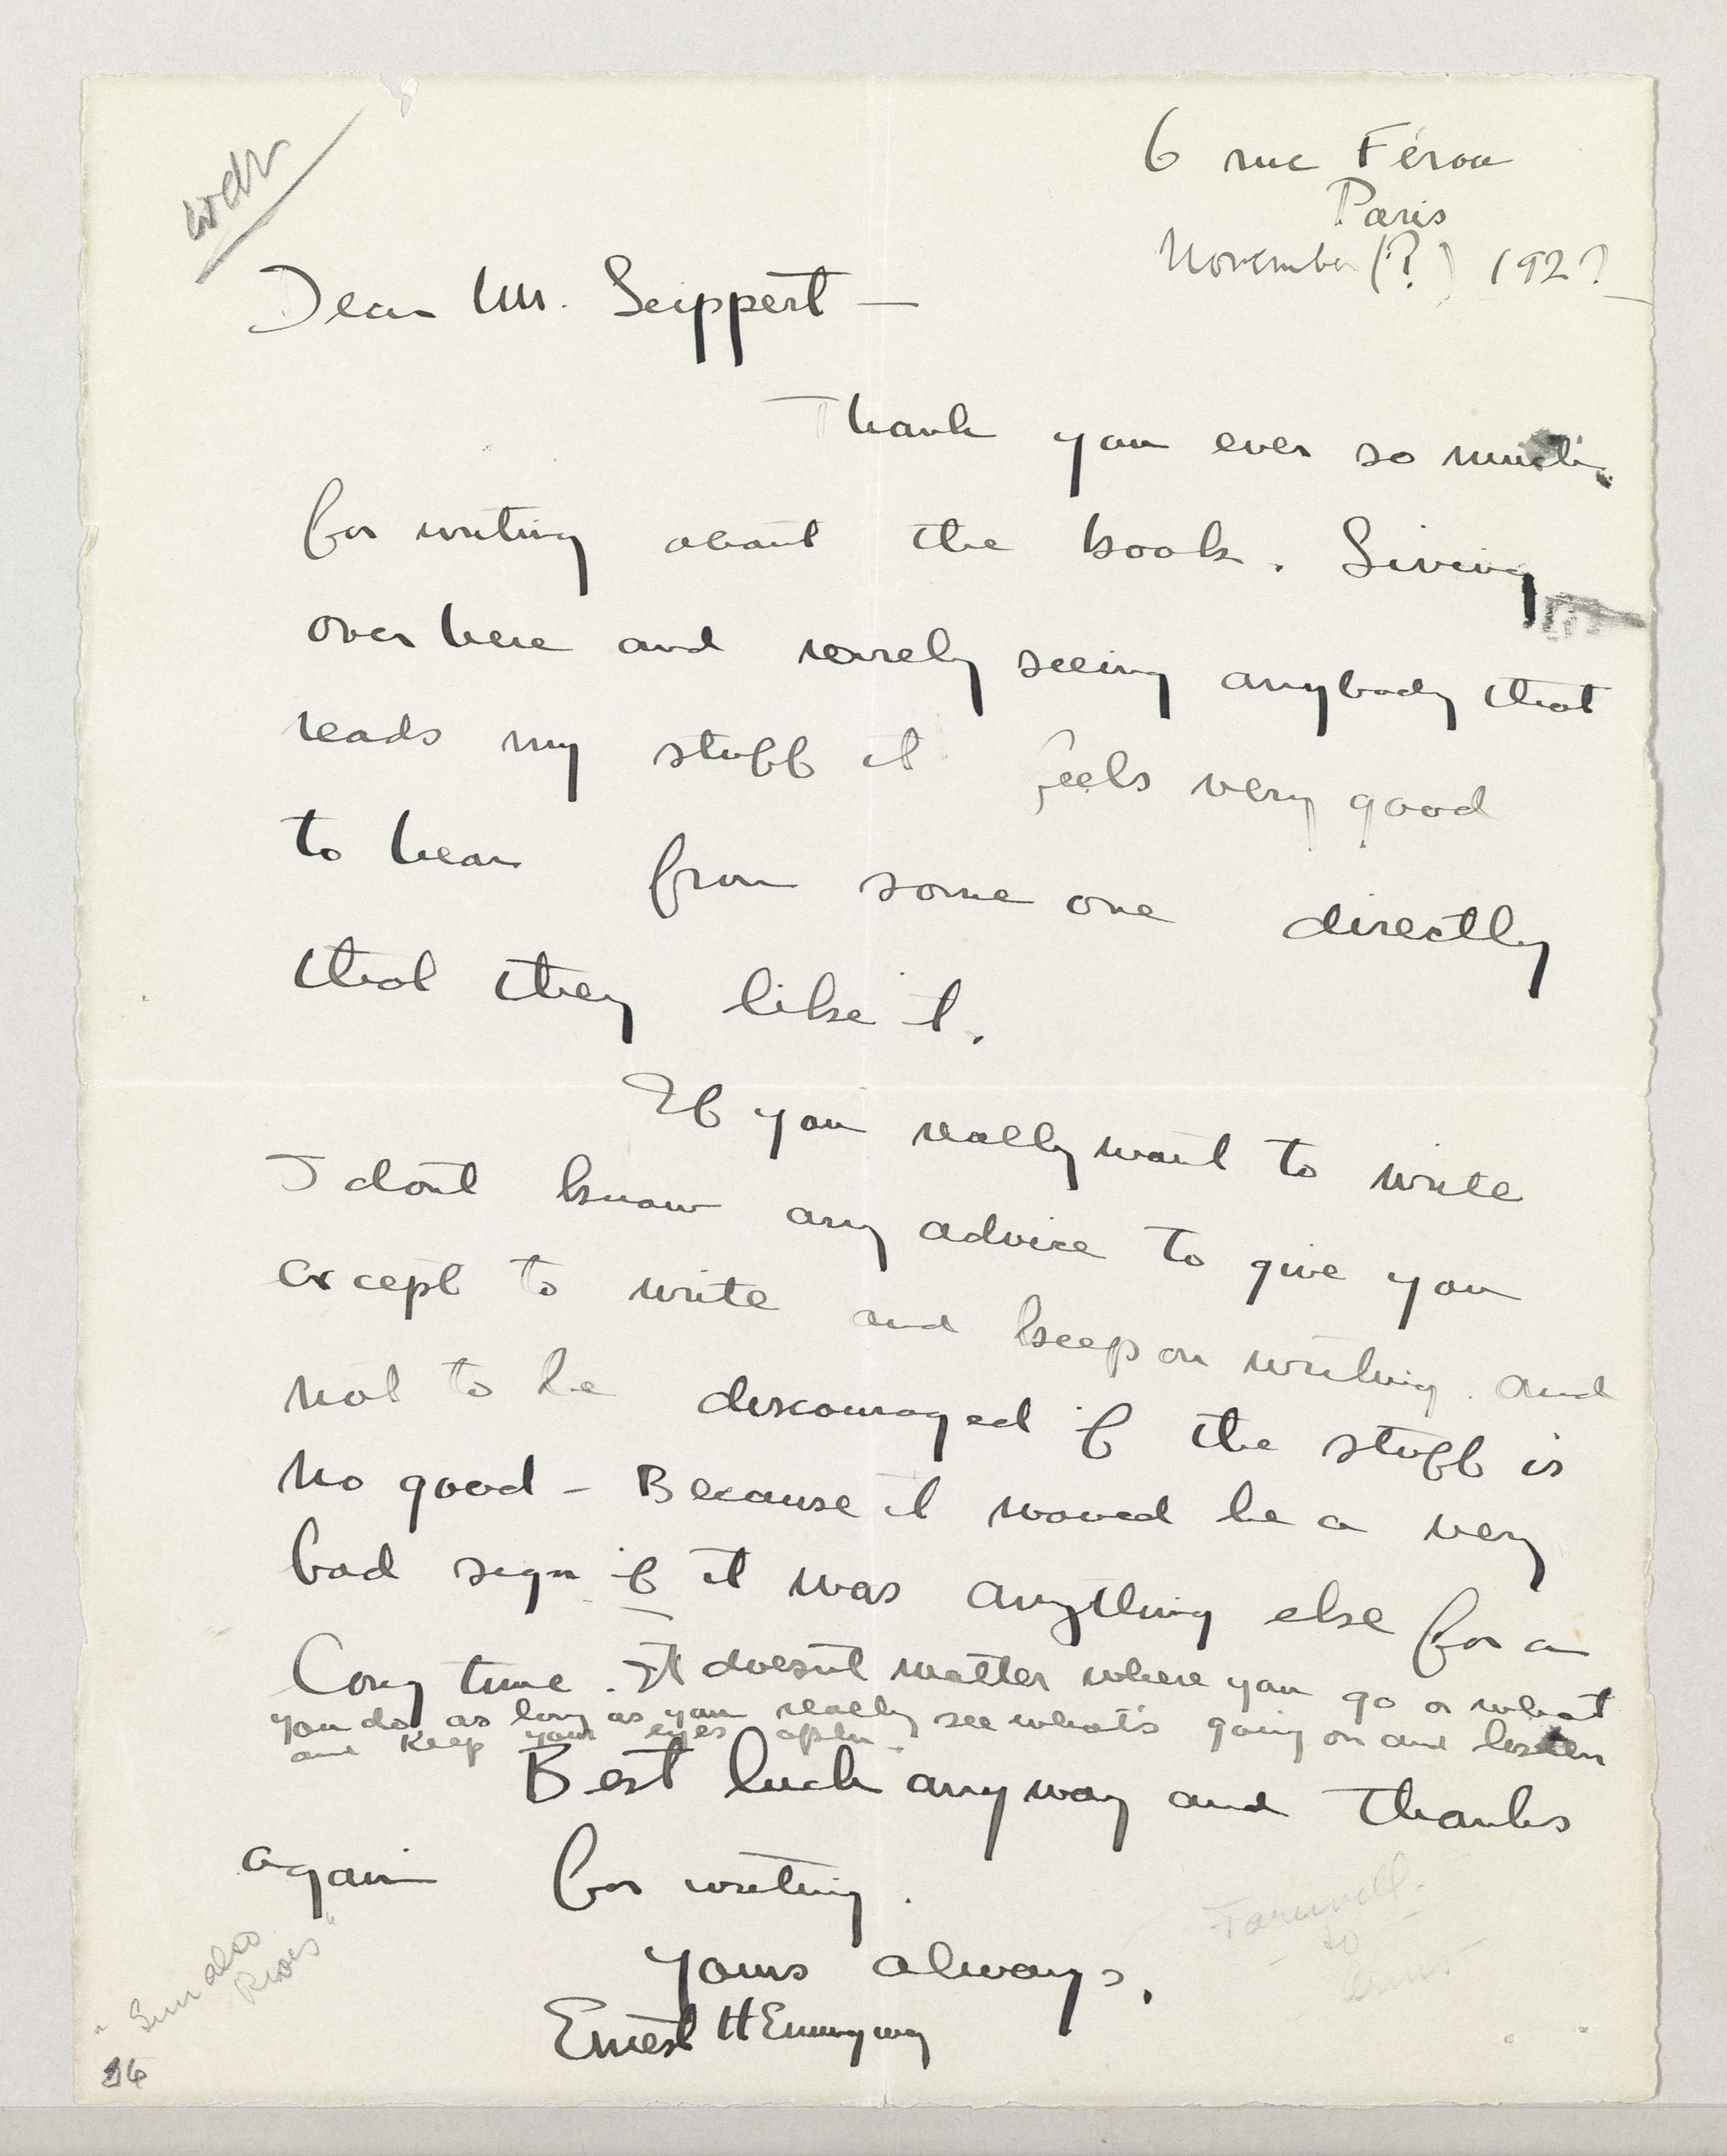 6 rue Férou
Paris
November (?) 192?
Dear Mr. Seippert —
Thank you ever so much
for writing about the book. Living
over here and rarely seeing anybody that
reads my stuff it feels very good
to hear from some one directly
that they like it.
If you really want to write
I dont know any advice to give you
except to write and keep on writing and
not to be discouraged if the stuff is
no good - Because it would be a very
bad sign if it was anything else for a
long time. It doesnt matter where you go or what
you do as long as you really see what's going on and listen
and keep your eyes open.
Best luck anyway and thanks
again for writing.
Yours always,
Ernest Hemingway
"Sun also
Rises"
Farewell
to
Arms